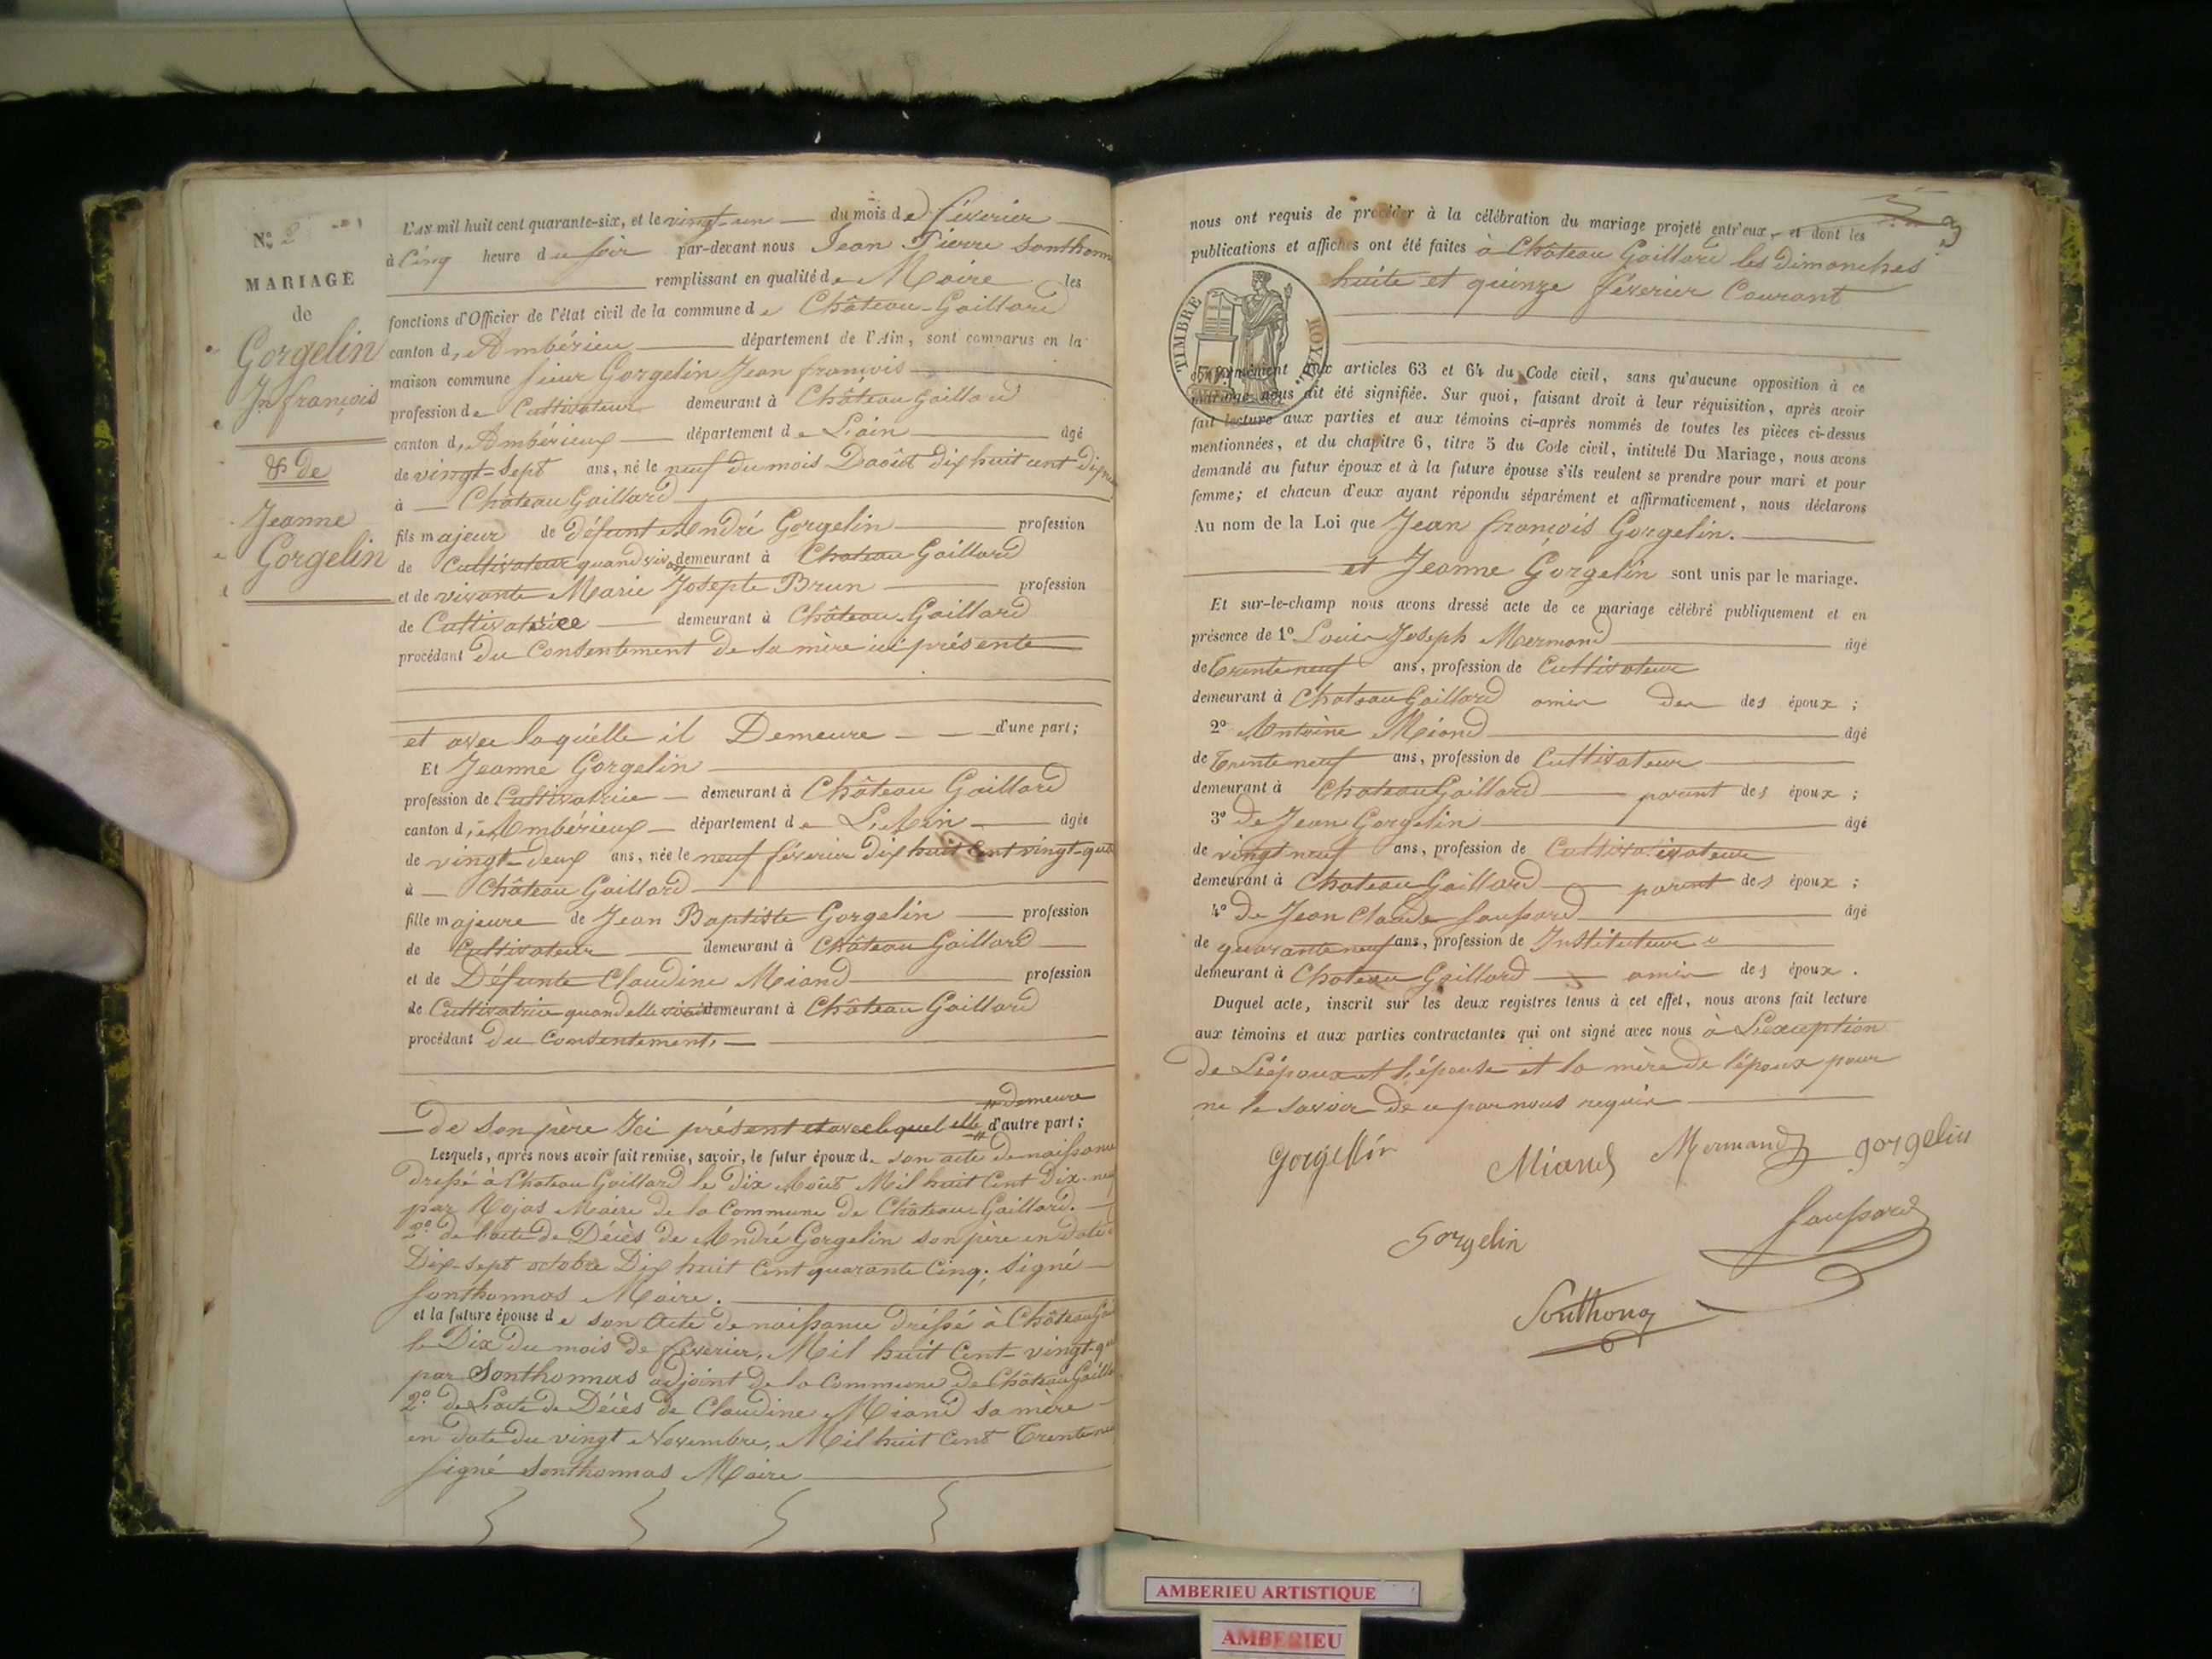 N.º 2
MARIAGE
de
Gorgelin
Jn françois
& de
Jeanne
Gorgelin
L'AN mil huit cent quarante-six, et le vingt-un du mois de février
à Cinq heure du soir par-devant nous Jean Pierre Sonthonn
remplissant en qualité de Maire les
fonctions d'Officier de l'état civil de la commune de Château-Gaillard
canton d, Ambérieu département de l'Ain, sont comparus en la
maison commune sieur Gorgelin Jean françois
profession de Cultivateur demeurant à Château Gaillard
canton d, Ambérieux département de L'ain âgé
de vingt-sept ans, né le neuf du mois Daoût dix huit cent dix neu
à Château Gaillard
fils majeur de défunt André Gorgelin profession
de Cultivateur quand vivant demeurant à Chateau Gaillard
et de vivante Marie Josepte Brun profession
de Cultivatrice demeurant à Château-Gaillard
procédant du Consentement de sa mère ici présente
et avec laquélle il Demeure d'une part;
Et Jeanne Gorgelin
profession de Cultivatrice demeurant à Château Gaillard
canton d, Ambérieux département de L'Ain âgée
de vingt-deux ans, née le neuf février dix huit Cent vingt-qua
à Château Gaillard
fille majeure de Jean Baptiste Gorgelin profession
de Cultivateur demeurant à Château Gaillard
et de Défunte Claudine Miand profession
de Cultivatrice quand elle vivait demeurant à Château Gaillard
procédant du Consentement,
# demeure
de son père Ici présent et avec lequel elle # d'autre part;
Lesquels, après nous avoir fait remise, savoir, le futur époux de son acte de naissance
dréssé à Chateau Gaillard le dix Août Mil huit Cent dix-neuf
par Mojas Maire de la Commune de Château-Gaillard.
2º de l'acte de Décès de André Gorgelin son père en date d
Dix-sept octobre Dix huit Cent quarante Cinq; signé
Sonthonnas Maire.
et la future épouse de son acte de naissance dréssé à Château Gai
le Dix du mois de février, Mil huit Cent-vingt-qu
par Sonthonnas adjoint de la Commune de Château Gailla
2º de L'acte de Décès de Claudine Miand sa mère
en date du vingt Novembre, Mil huit Cent Trente neu
signé Sonthonnas Maire
3
nous ont requis de procéder à la célébration du mariage projeté entr'eux, et dont les
publications et affiches ont été faites à Château Gaillard les dimanches
huite et quinze février Courant
TIMBRE ROYAL
conformément aux articles 63 et 64 du Code civil, sans qu'aucune opposition à ce
mariage nous ait été signifiée. Sur quoi, faisant droit à leur réquisition, après avoir
fait lecture aux parties et aux témoins ci-après nommés de toutes les pièces ci-dessus
mentionnées, et du chapitre 6, titre 5 du Code civil, intitulé Du Mariage, nous avons
demandé au futur époux et à la future épouse s'ils veulent se prendre pour mari et pour
femme; et chacun d'eux ayant répondu séparément et affirmativement, nous déclarons
Au nom de la Loi que Jean françois Gorgelin.
et Jeanne Gorgelin sont unis par le mariage.
Et sur-le-champ nous avons dressé acte de ce mariage célébré publiquement et en
présence de 1º Louis Joseph Mermand âgé
de Trente neuf ans, profession de Cultivateur
demeurant à Chateau Gaillard amis des des époux;
2º Antoine Miand âgé
de Trente neuf ans, profession de Cultivateur
demeurant à Chateau Gaillard parent des époux;
3º de Jean Gorgelin âgé
de vingt neuf ans, profession de Cultivateur
demeurant à Chateau Gaillard parent des époux;
4º de Jean Claude Saussard âgé
de quarante neuf ans, profession de Instituteur
demeurant à Chateau Gaillard amis des époux.
Duquel acte, inscrit sur les deux registres tenus à cet effet, nous avons fait lecture
aux témoins et aux parties contractantes qui ont signé avec nous à L'éxception
de L'époux et l'épouse et la mère de l'époux pour
ne le savoir de ce par nous requis
gorgellin Miand Mermand gorgelin
Gorgelin Saussard
Sonthonas
AMBERIEU ARTISTIQUE
AMBERIEU